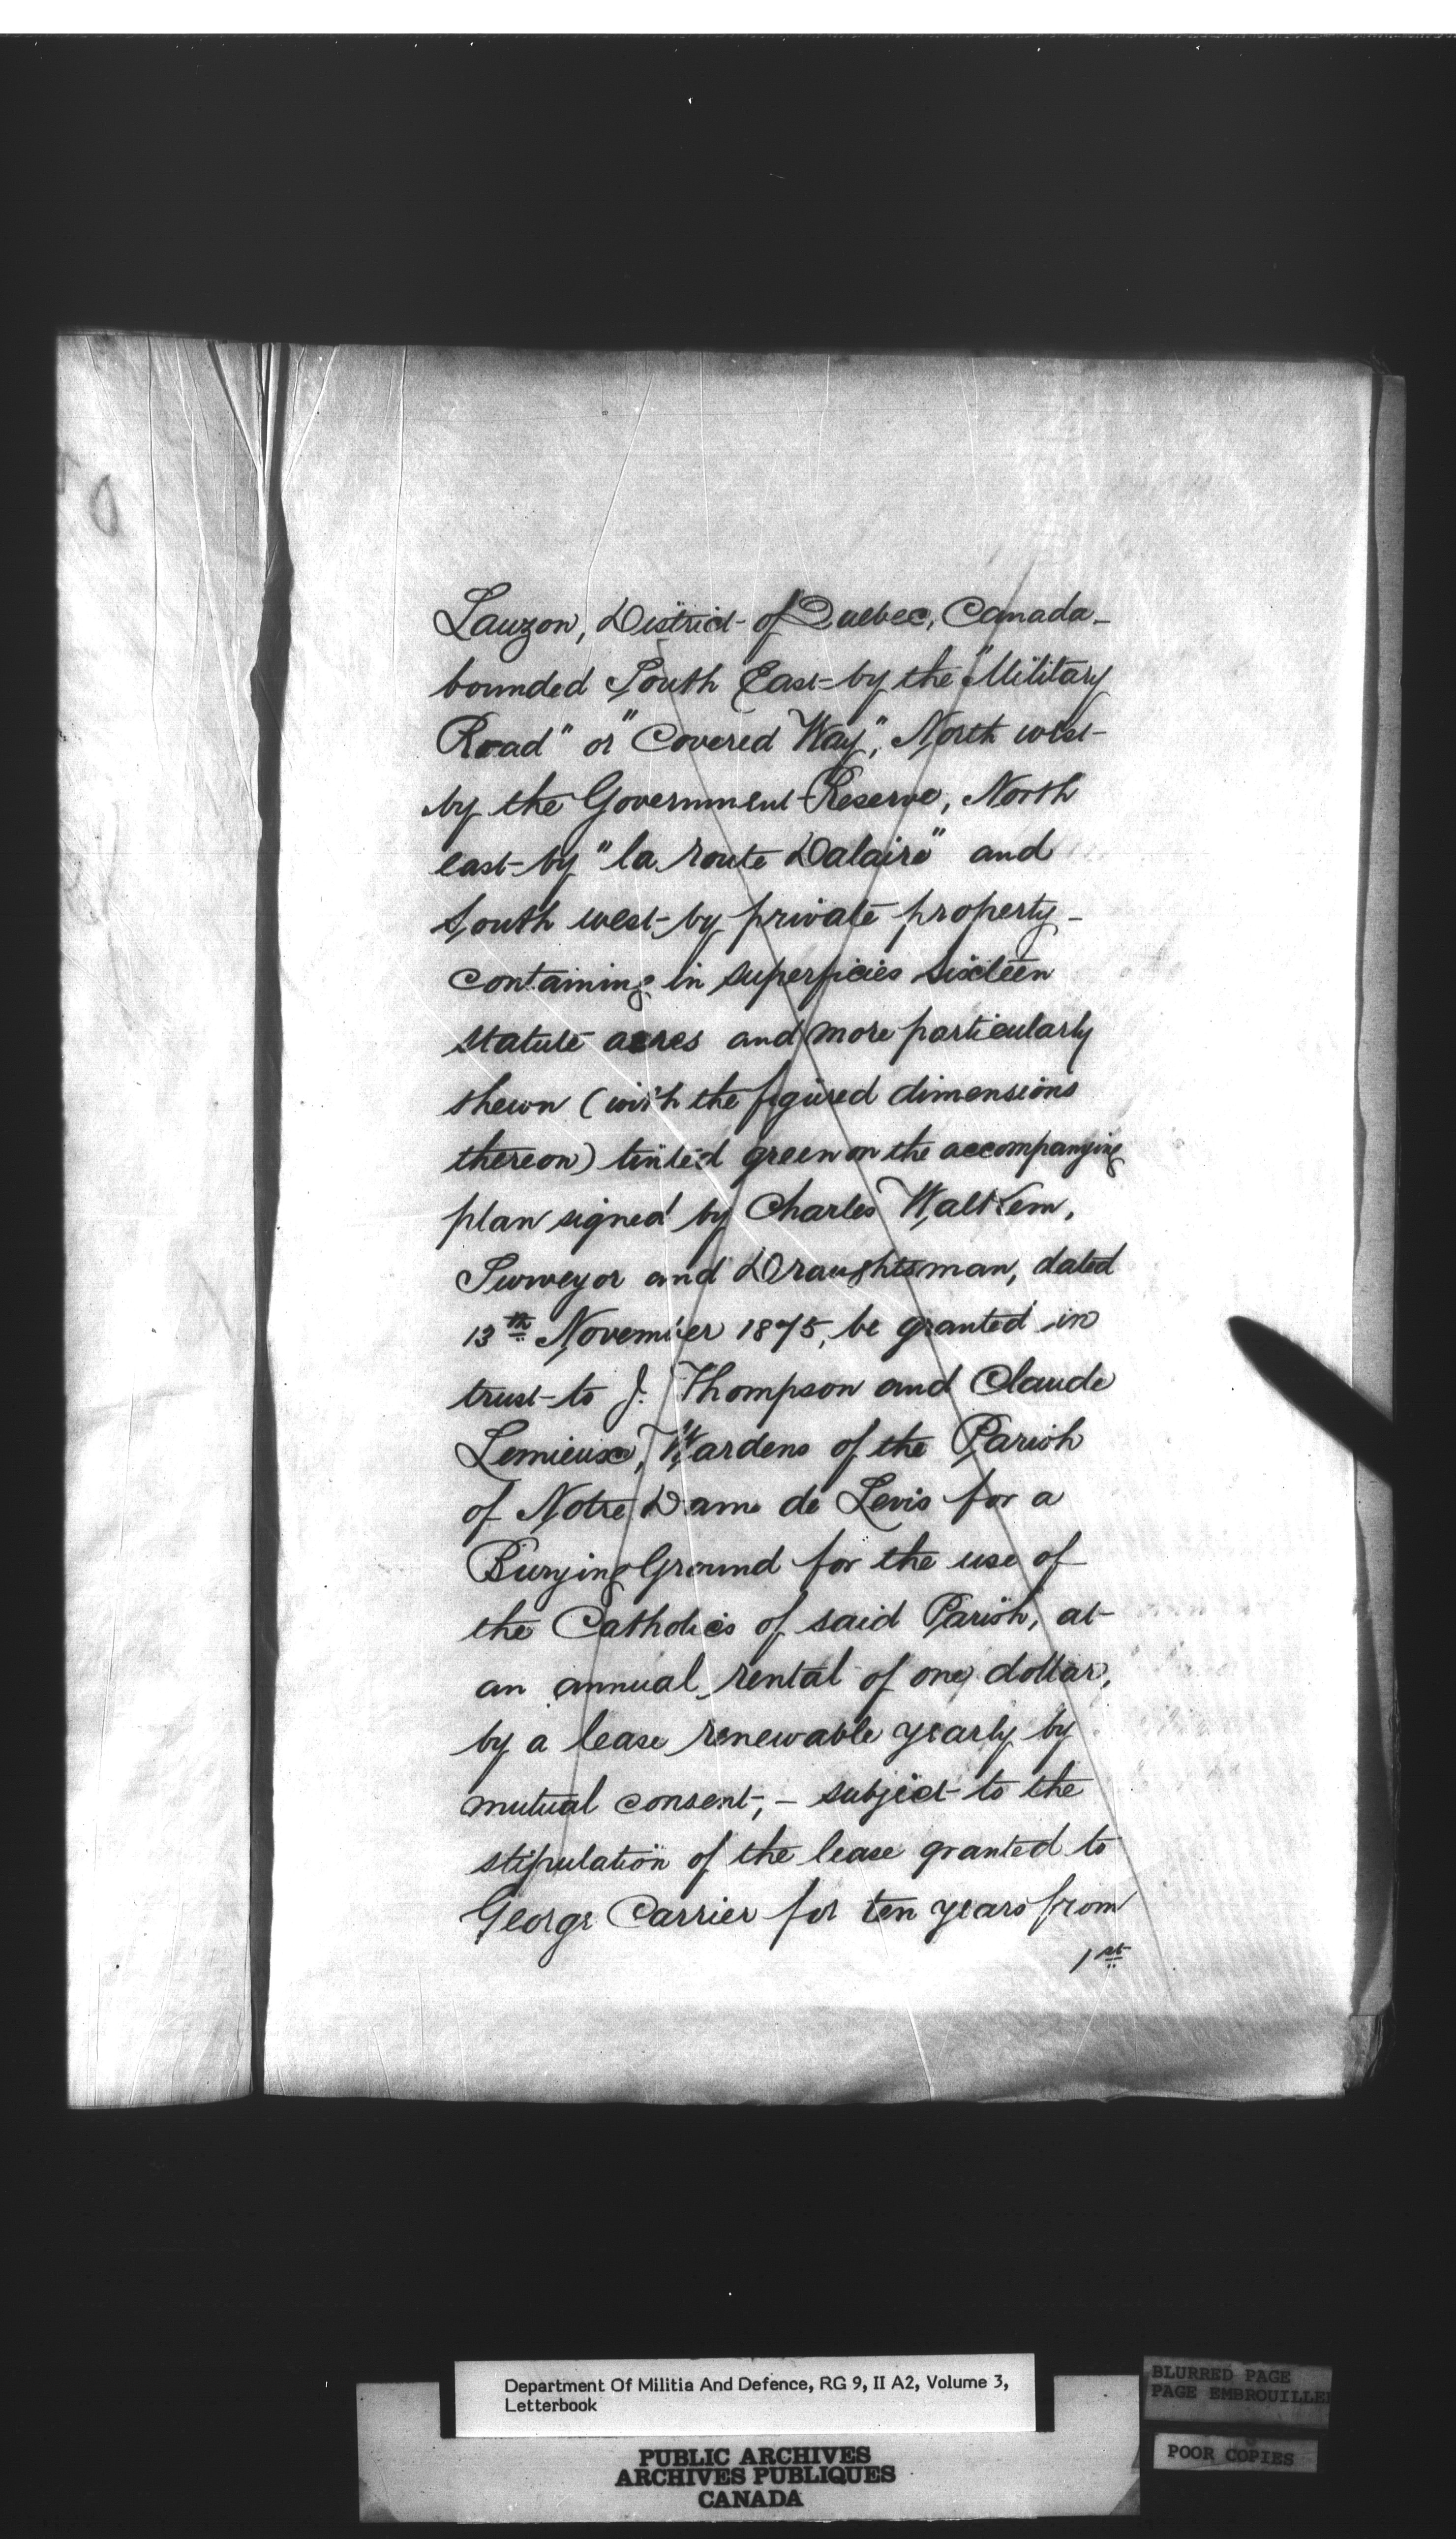 Lauzon, District of Quebec, Canada –
bounded South East by the "Military
Road" or "Covered Way", North west
by the Government Reserve, North
east by "la route Dalaire" and
South west by private property –
containing in superficies sixteen
statute acres and more particularly
shewn (with the figured dimensions
thereon) tinted green on the accompanying
plan signed by Charles Walkem,
Surveyor and Draughtsman, dated
13th November 1875, be granted in
trust to J. Thompson and Claude
Lemieux, Wardens of the Parish
of Notre Dame de Levis for a
Burying Ground for the use of
the Catholics of said Parish, at
an annual rental of one dollar,
by a lease renewable yearly by
mutual consent, – subject to the
stipulation of the lease granted to
George Carrier for ten years from
1st
Department Of Militia And Defence, RG 9, II A2, Volume 3,
Letterbook
PUBLIC ARCHIVES
ARCHIVES PUBLIQUES
CANADA
BLURRED PAGE
PAGE EMBROUILLE
POOR COPIES